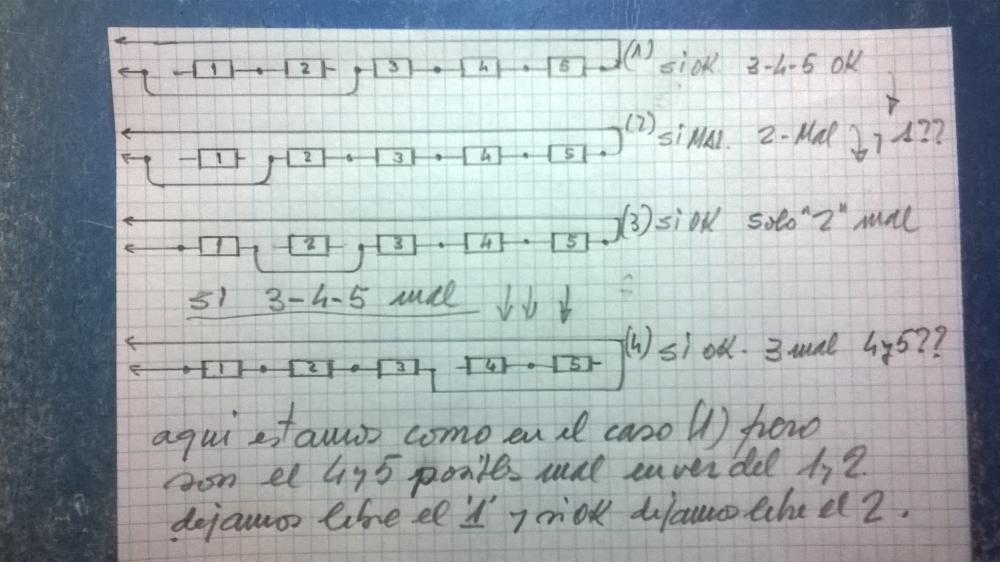 1 2 3 4 5 (1) si OK 3-4-5 OK
1 2 3 4 5 (2) si MAL. 2-Mal y 1??
1 2 3 4 5 (3) si OK solo "2" mal
si 3-4-5 mal
1 2 3 4 5 (4) si OK. 3 mal 4y5??
aqui estamos como en el caso (1) pero
son el 4y5 mal en vez del 1y2.
dejamos libre el '1' y si OK dejamos libre el 2.